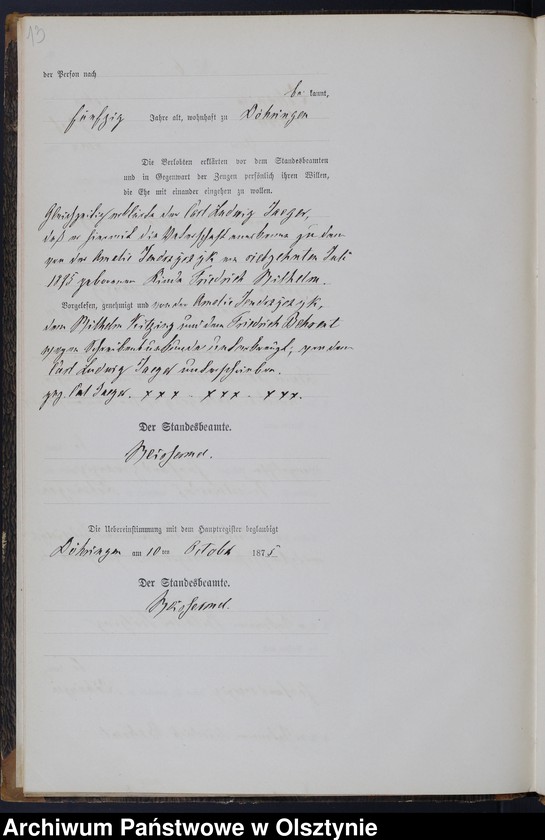 13
der Person nach
be kannt,
fünfzig Jahre alt, wohnhaft zu Döhringen
Die Verlobten erklärten vor dem Standesbeamten
und in Gegenwart der Zeugen persönlich ihren Willen,
die Ehe mit einander eingehen zu wollen.
Gleichzeitig erklärte der Carl Ludwig Jaeger,
daß er hiermit die Vaterschaft anerkenne zu dem
von der Amalie am siebzehnten Juli
1875 geborenen Kinde Friedrich Wilhelm.
Vorgelesen, genehmigt und von der Amalie
dem Wilhelm und dem Friedrich Behrent
wegen Schreibensunkunde unterkreuzt, von dem
Carl Ludwig Jaeger unterschrieben.
gez. Carl Jaeger. x x x - x x x - x x x.
Der Standesbeamte.
Die Uebereinstimmung mit dem Hauptregister beglaubigt
Döhringen am 10ten October 1875
Der Standesbeamte.
Archiwum Państwowe w Olsztynie